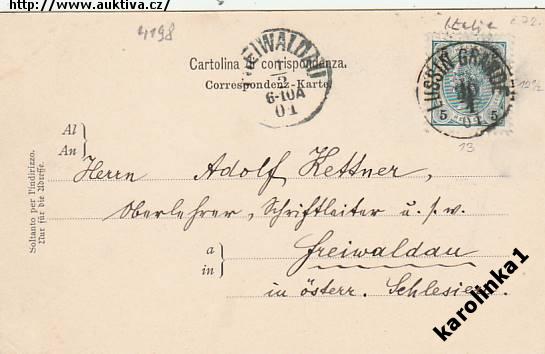 Používáno z: http://www.auktiva.cz/
4198
Italie
Cartolina di corrispondenza.
Correspondenz-Karte
FREIWALDAU
3
6-10A
01
LUSSIN GRANDE
01
5
5
13
Al
An
Herrn Adolf Kettner,
Oberlehrer, Schriftleiter u. s. w.
a
in
Freiwaldau
in österr. Schlesien.
Soltanto per l'indirizzo.
Nur für die Adresse.
karolinka1